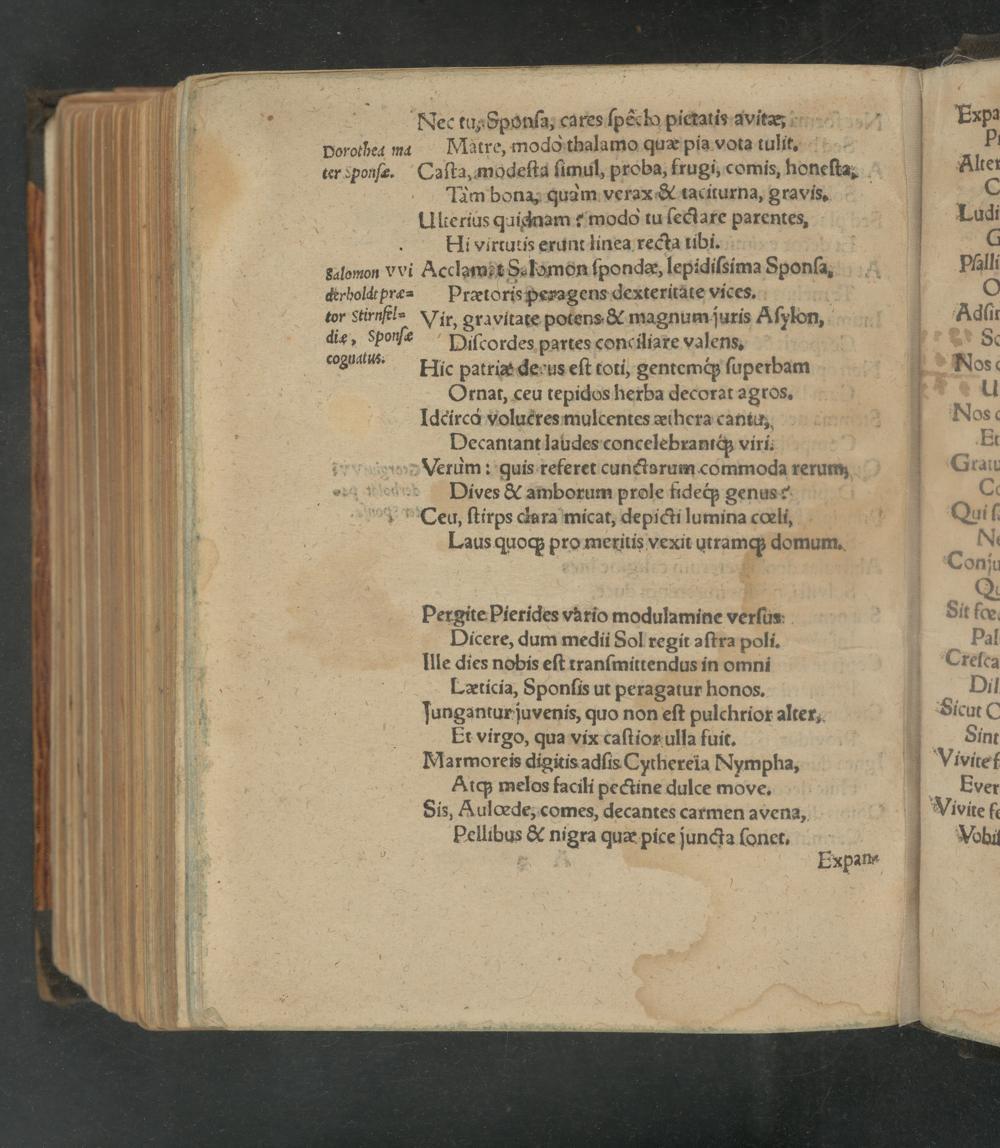 Nec tu, Sponſa, cares ſpêclo pietatis avitæ,
Matre, modò thalamo quæ pia vota tulit.
Dorothea ma
ter Sponſæ.
Caſta, modeſta ſimul, proba, frugi, comis, honeſta,
Tàm bona, quàm verax & taciturna, gravis.
Ulterius quidnam? modò tu ſectare parentes,
Hi virtutis erunt linea recta tibi.
Salomon VVi
derholdt præ=
tor Stirnfel=
diæ, Sponſæ
cognatus.
Acclamat Salomon ſpondæ, lepidiſsima Sponſa,
Prætoris peragens dexteritate vices.
Vir, gravitate potens & magnum juris Aſylon,
Diſcordes partes conciliare valens.
Hic patriæ decus eſt toti, gentemq́ꝫ ſuperbam
Ornat, ceu tepidos herba decorat agros.
Idcircò volucres mulcentes æthera cantu,
Decantant laudes concelebrantq́ꝫ viri.
Verùm: quis referet cunctarum commoda rerum,
Dives & amborum prole fideq́ꝫ genus?
Ceu, ſtirps clara micat, depicti lumina cœli,
Laus quoqꝫ pro meritis vexit utramqꝫ domum.
Pergite Pierides vario modulamine verſus
Dicere, dum medii Sol regit aſtra poli.
Ille dies nobis eſt tranſmittendus in omni
Læticia, Sponſis ut peragatur honos.
Jungantur juvenis, quo non eſt pulchrior alter,
Et virgo, qua vix caſtior ulla fuit.
Marmoreis digitis adſis Cythereïa Nympha,
Atqꝫ melos facili pectine dulce move.
Sis, Aulœde, comes, decantes carmen avena,
Pellibus & nigra quæ pice juncta ſonet.
Expan-
Expa
Alter
Ludi
Pſalli
Adſin
Nos
Nos
Et
Gratu
Qui
Conju
Qu
Sit fœ
Pal
Creſca
Dil
Sicut
Sint
Vivite
Ever
Vivite